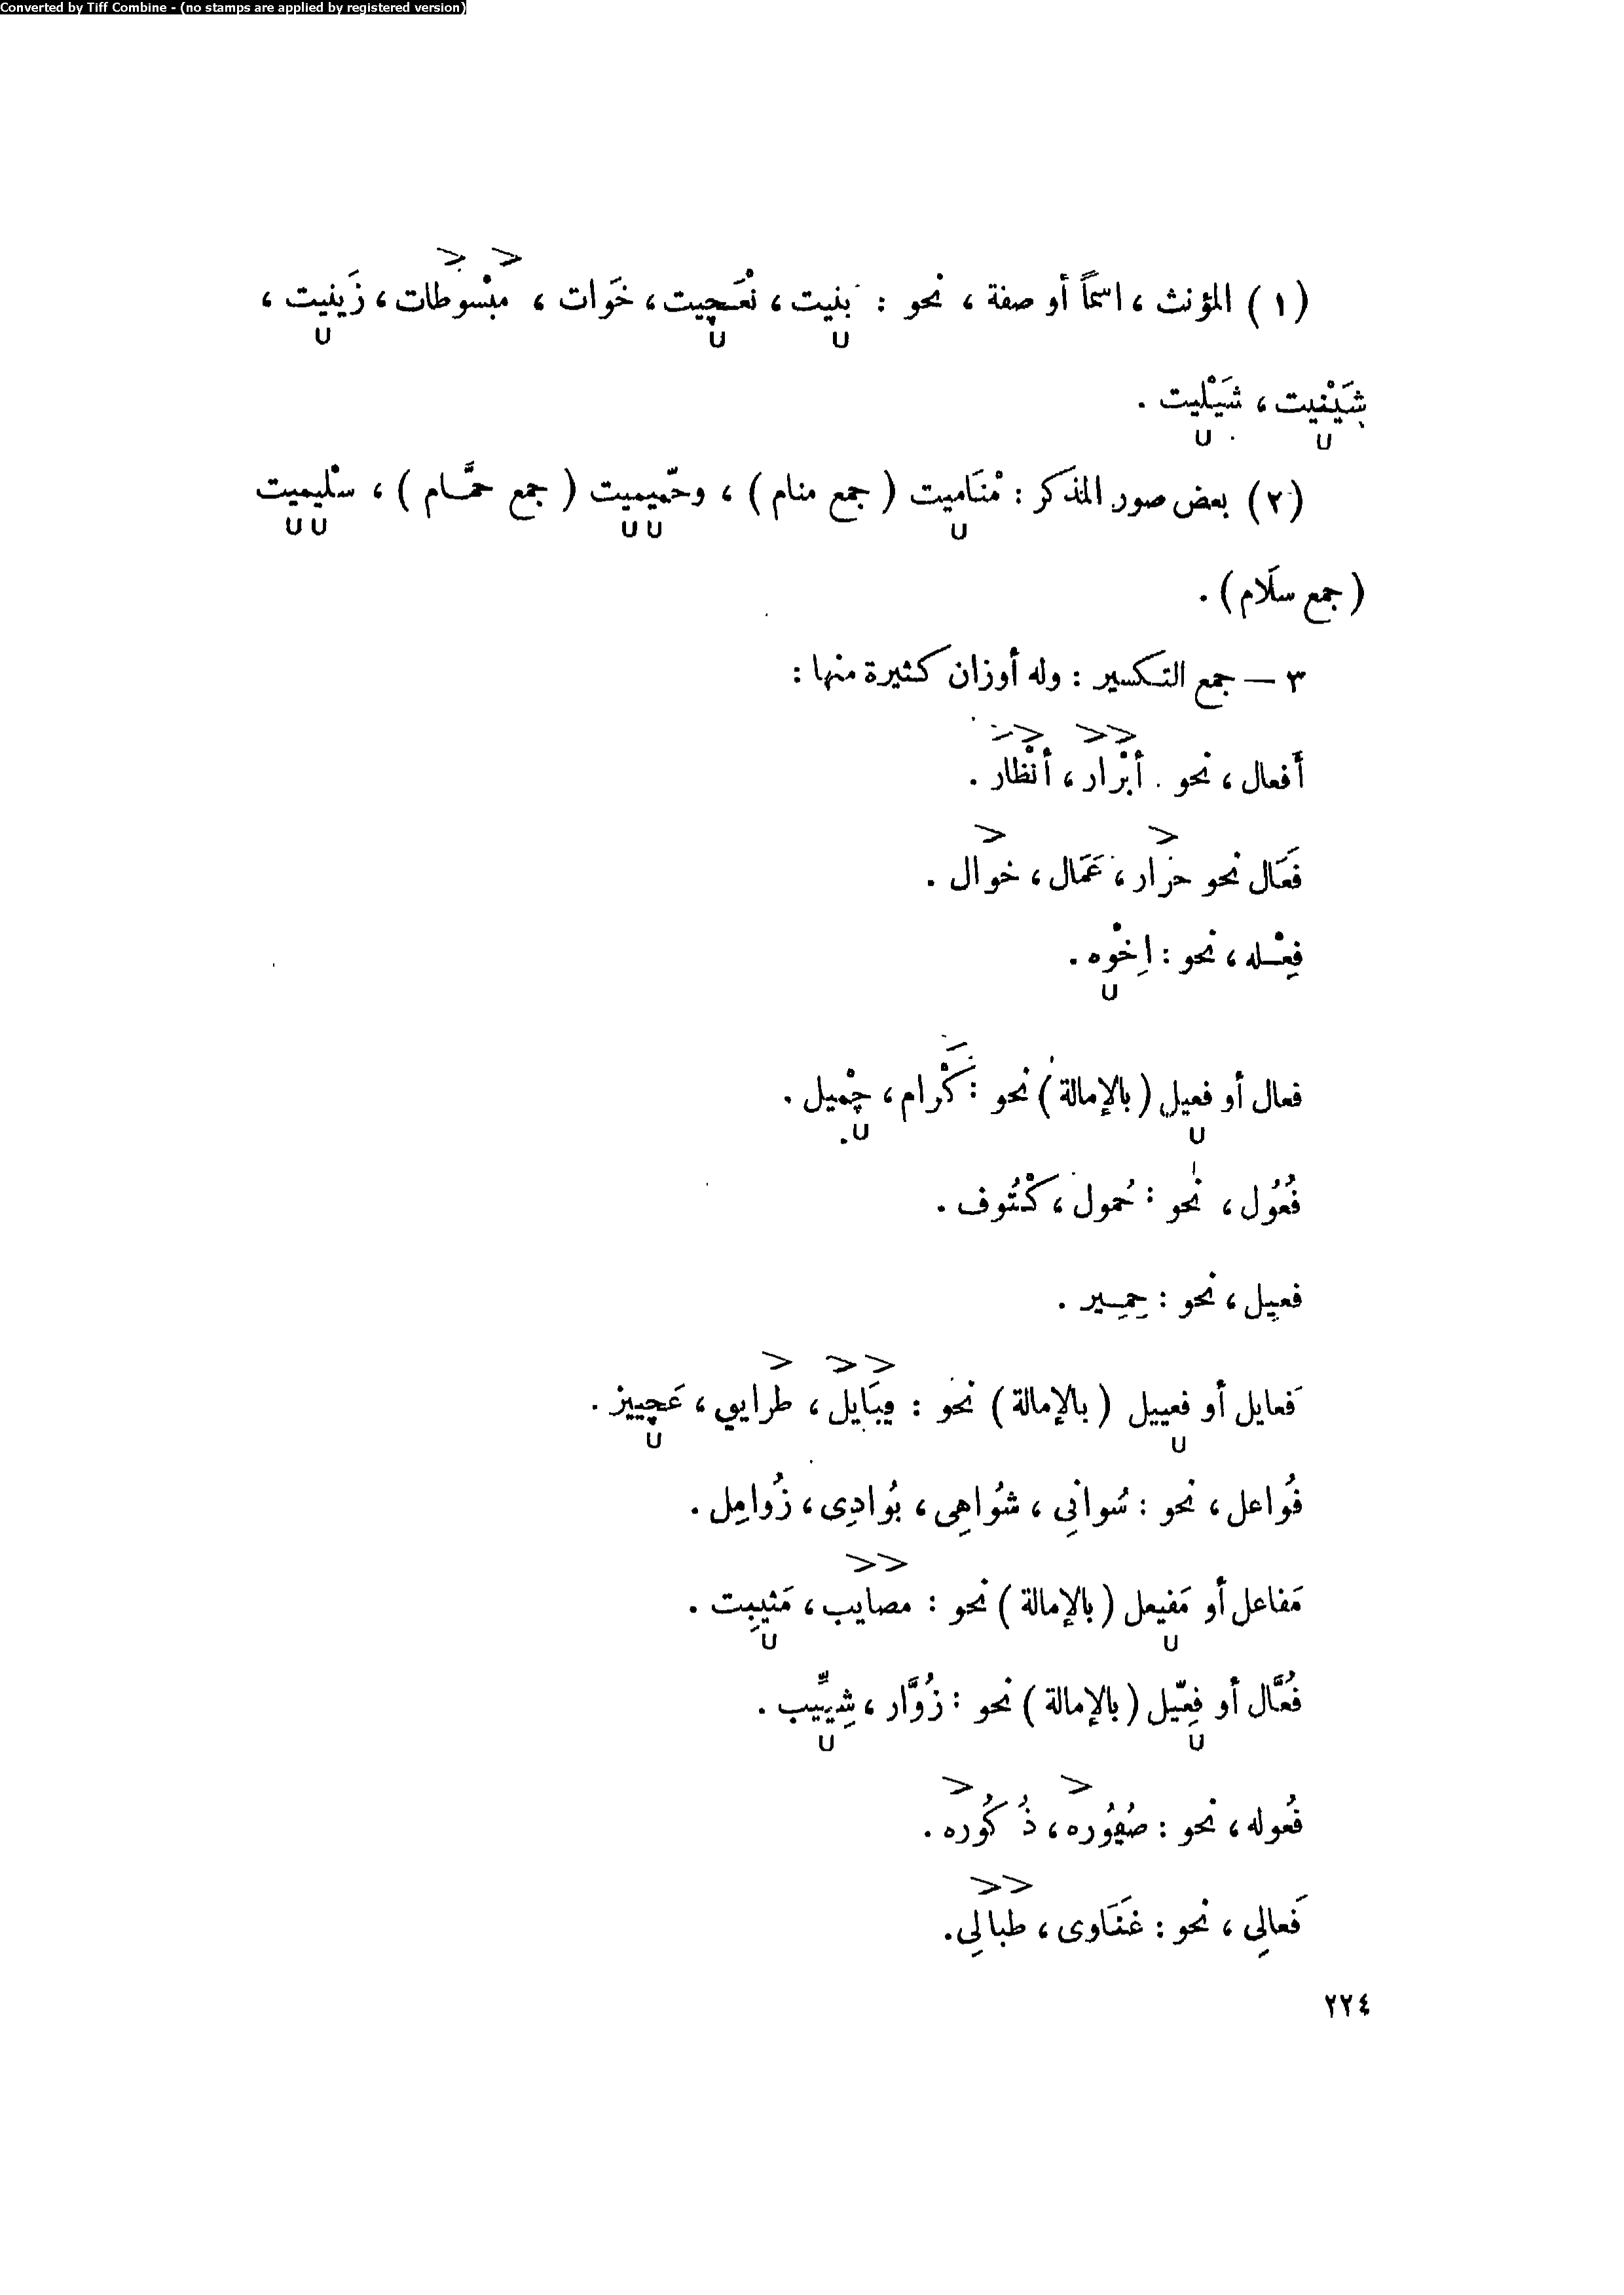 Converted by Tiff Combine - (no stamps are applied by registered version)
(١) المؤنث ، اسماً أو صفة ، نحو : بنيت ، نْعَجيت ، خَوات ، مبْسوطات ، زَينيت ،
شَيْنيت ، شَيْليت .
(٢) بعض صور المذكر : مْنَاميت (جمع منام) ، وحّميميت (جمع حمَّام) ، سْليميت
(جمع سلَام) .
٣ — جمع التكسير : وله أوزان كثيرة منها :
أَفعال ، نحو . أبْرار ، أنْظار .
فَعَال نحو حزار ، عَمَال ، خوال .
فِعْله ، نحو : اِخْوه .
فعال أو فعيل (بالإمالة) نحو : كْرام ، چْميل .
فُعُول ، نحو : حُمول ، كْتُوف .
فعيِل ، نحو : حِمِير .
فَعايل أو فعييل (بالإمالة) نحو : ڨبَايل ، طرايڨ ، عَچييز .
فُواعل ، نحو : سُوانِى ، شُواهِى ، بُوادِى ، زُوامِل .
مَفاعل أو مَفيعل (بالإمالة) نحو : مصايب ، مَثيبِت .
فُعَّال أو فِعّيل (بالإمالة) نحو : زُوَّار ، شِيِّيب .
فُعوله ، نحو : صُڨُوره ، ذُكُوره .
فَعالِى ، نحو : غنَاوى ، طبالِى .
٢٢٤